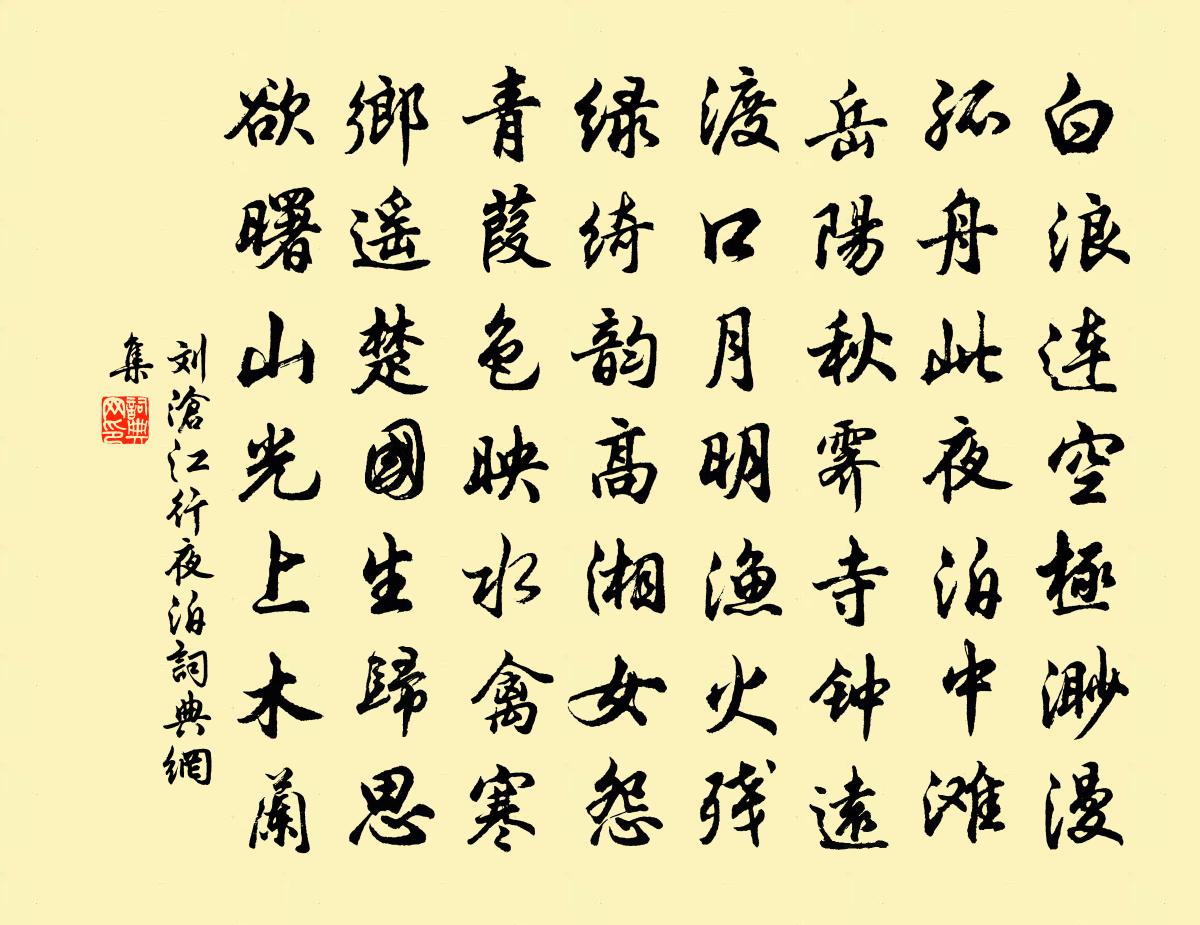 白浪连空極渺漫
孤舟此夜泊中滩
岳陽秋霽寺钟遠
渡口月明渔火残
绿绮韵高湘女怨
青葭色映水禽寒
鄉遥楚國生歸思
欲曙山光上木蘭
刘滄江行夜泊詞典網
集
詞典網印